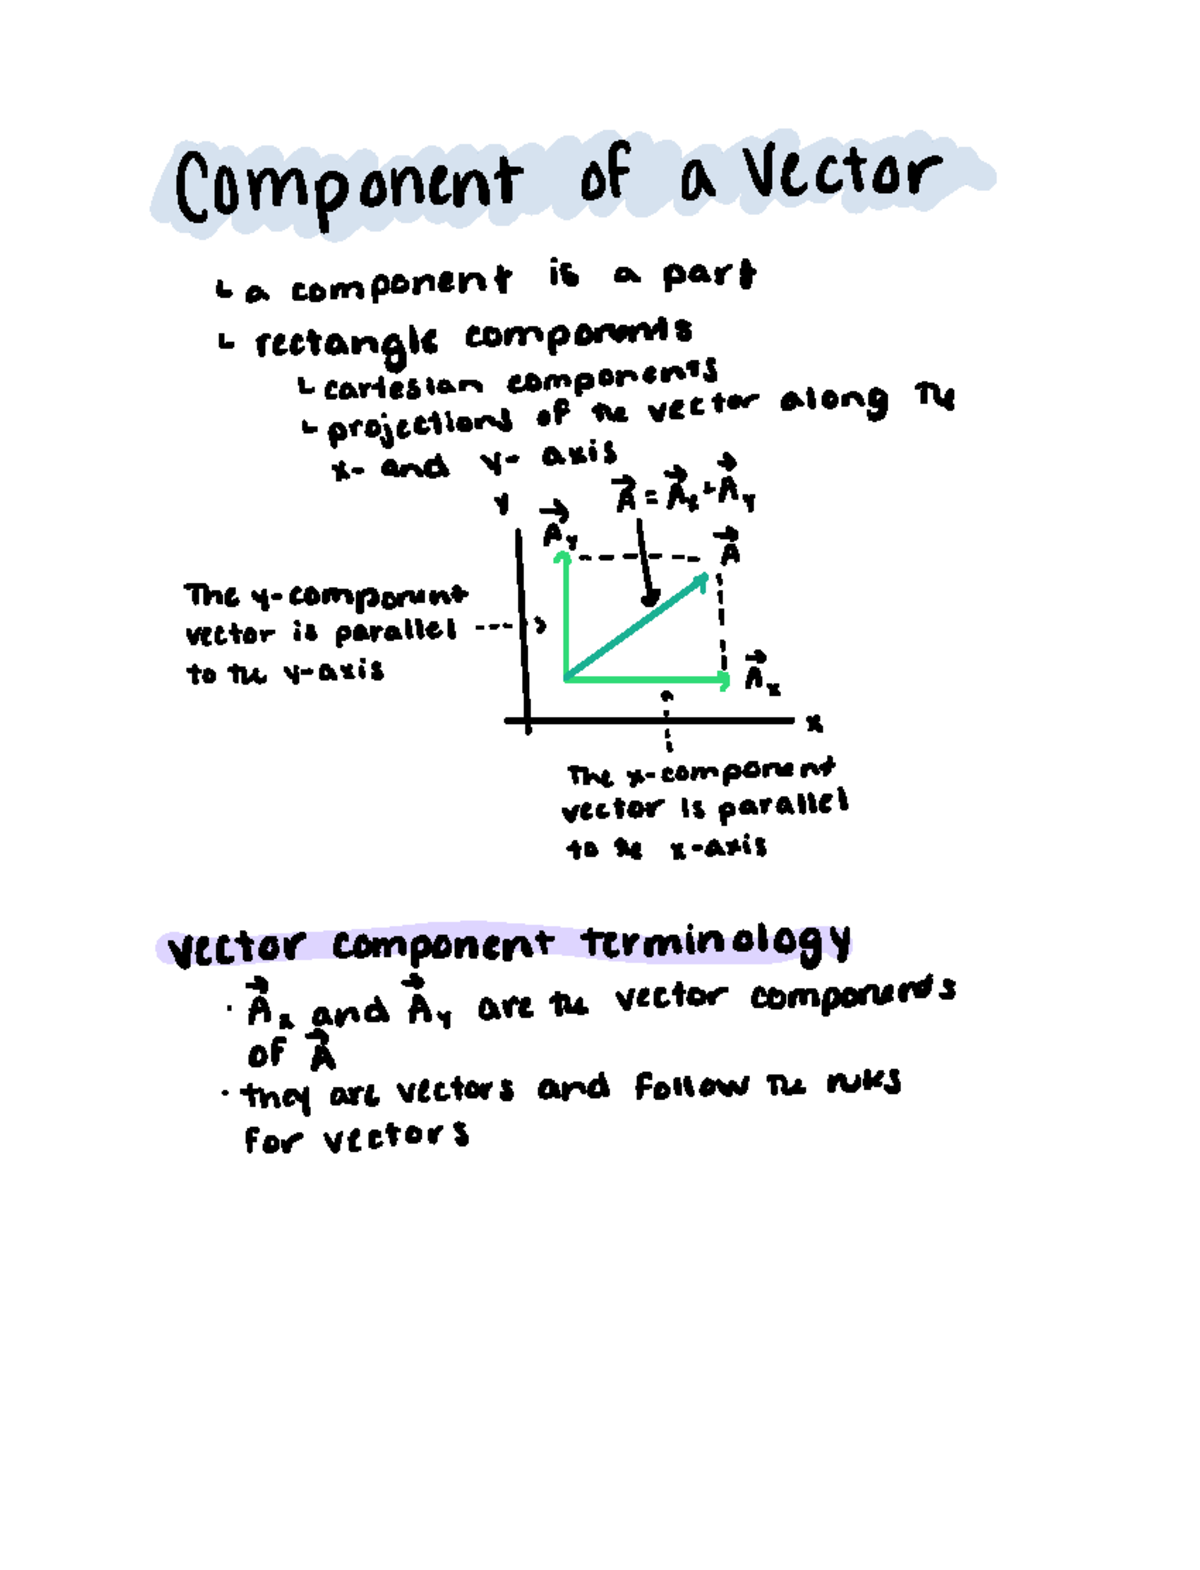 Component of a Vector
↳ a component is a part
↳ rectangle components
↳ cartesian components
↳ projections of the vector along the
x- and y- axis
y
A⃗y
A⃗ = A⃗x + A⃗y
A⃗
The y-component
vector is parallel
to the y-axis
A⃗x
x
The x-component
vector is parallel
to the x-axis
vector component terminology
· A⃗x and A⃗y are the vector components
of A⃗
· they are vectors and follow the rules
for vectors